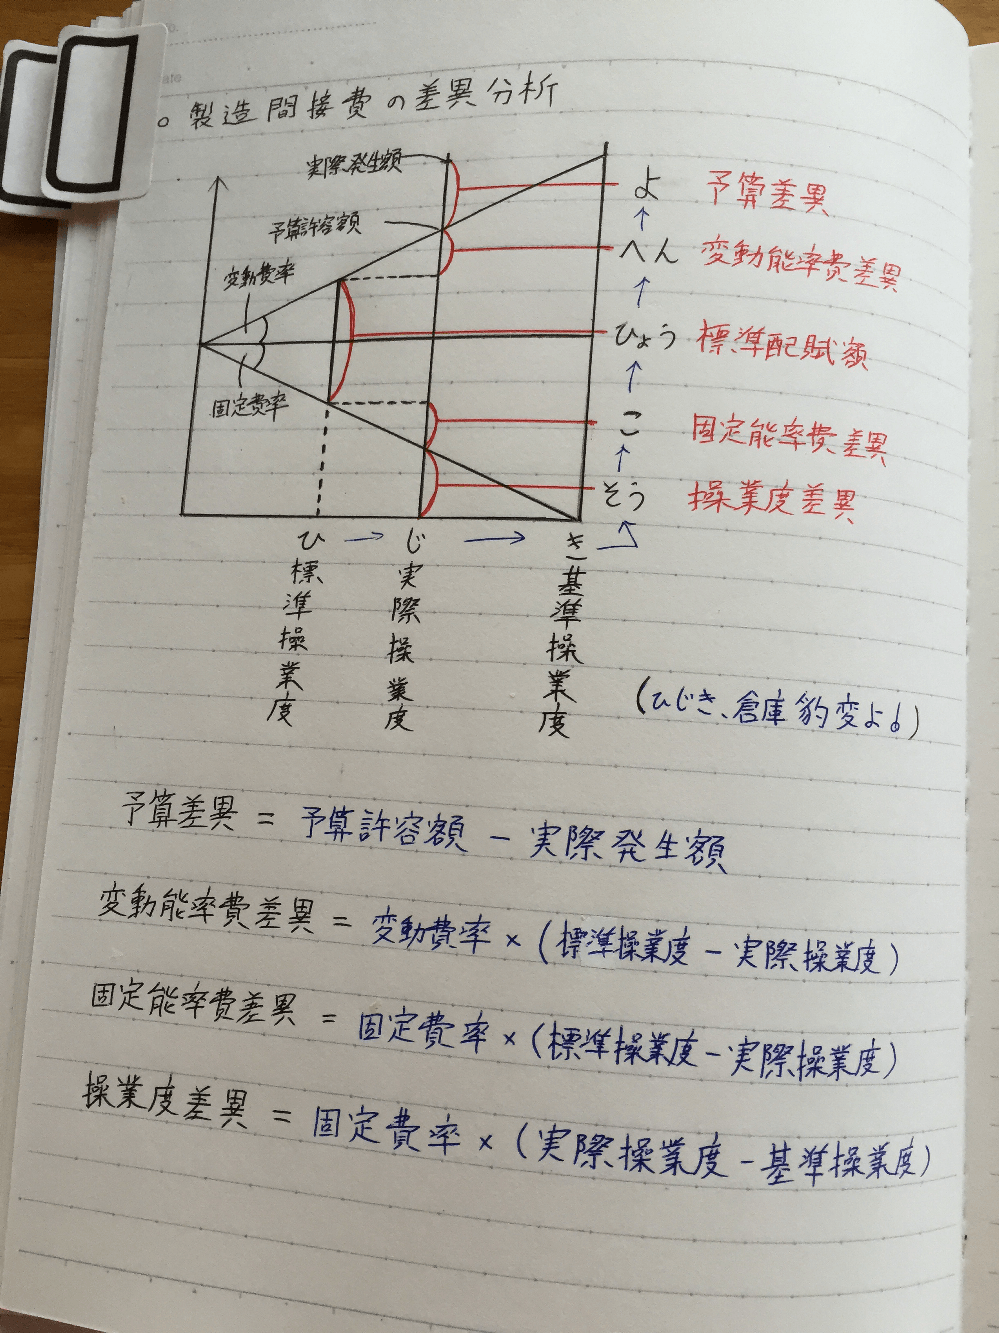 。製造間接費の差異分析
実際発生額
よ 予算差異
予算許容額
へん 変動能率費差異
変動費率
ひょう 標準配賦額
固定費率
こ 固定能率費差異
そう 操業度差異
ひ標準操業度
じ実際操業度
き基準操業度
(ひじき、倉庫豹変よ♩)
予算差異 = 予算許容額 - 実際発生額
変動能率費差異 = 変動費率 × (標準操業度 - 実際操業度)
固定能率費差異 = 固定費率 × (標準操業度 - 実際操業度)
操業度差異 = 固定費率 × (実際操業度 - 基準操業度)